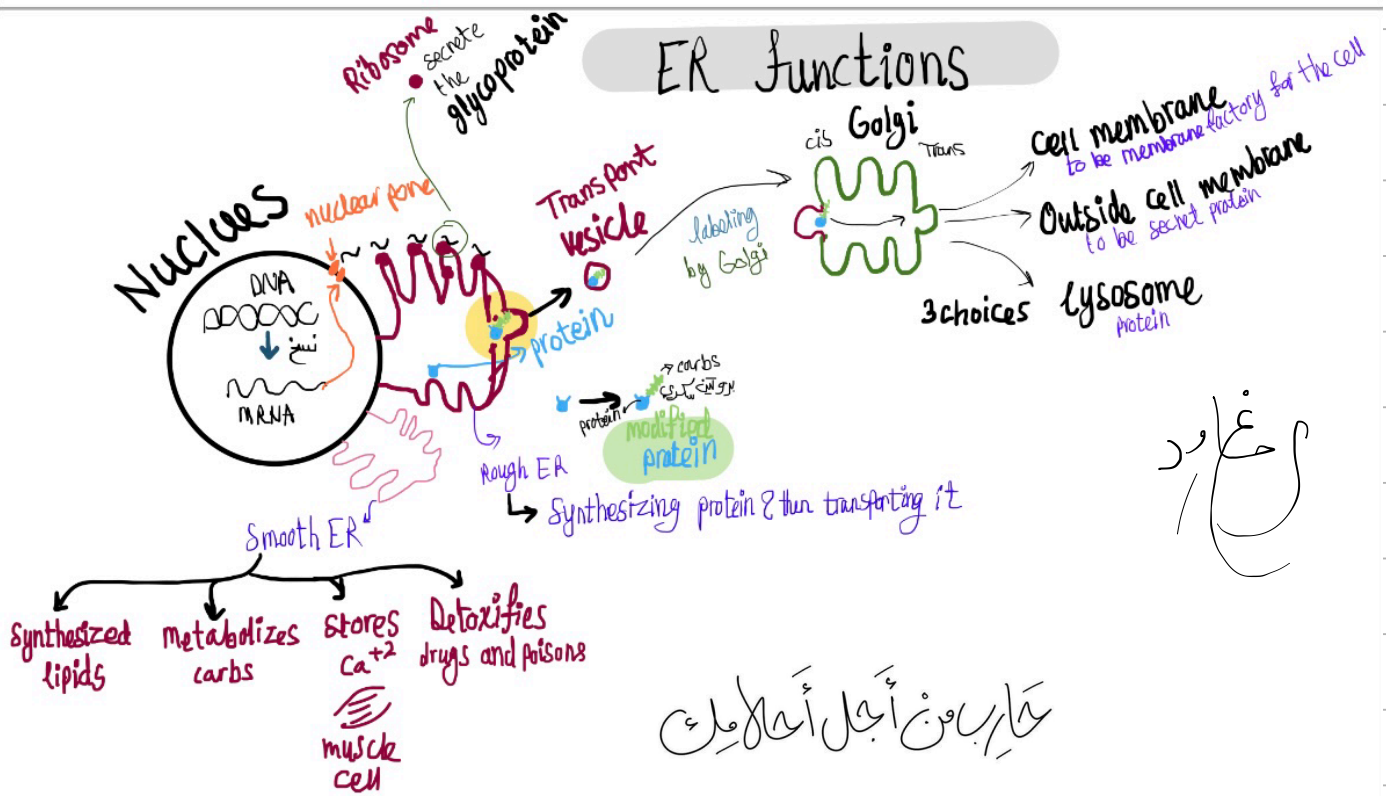 ER functions
Ribosome
secrete
the
glycoprotein
Nuclues
nuclear pore
DNA
نسخ
MRNA
Transport
vesicle
labeling
by Golgi
cis
Golgi
Trans
cell membrane
to be membrane factory for the cell
Outside cell membrane
to be secret protein
3 choices
lysosome
protein
protein
carbs
بروتين سكري
protein
modified
protein
Rough ER
Synthesizing protein & then transporting it
Smooth ER
Synthesized
lipids
metabolizes
carbs
Stores
Ca+2
muscle
cell
Detoxifies
drugs and poisons
حَارِب من أَجل أَحلامك